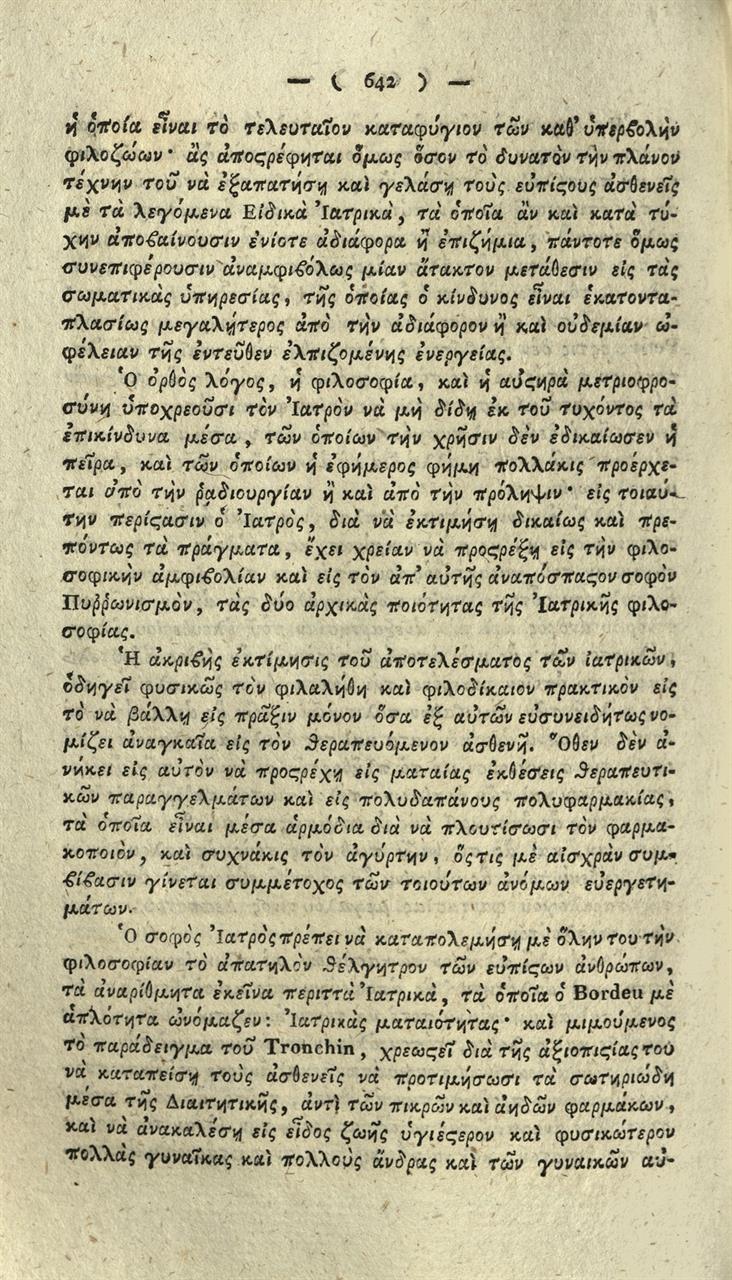 — ( 642 ) —
ἡ ὁποία εἶναι τὸ τελευταῖον καταφύγιον τῶν καθ᾽ ὑπερβολὴν
φιλοζώων· ἂς ἀποςρέφηται ὅμως ὅσον τὸ δυνατὸν τὴν πλάνον
τέχνην τοῦ νὰ ἐξαπατήσῃ καὶ γελάσῃ τοὺς εὐπίςους ἀσθενεῖς
μὲ τὰ λεγόμενα Εἰδικὰ Ἰατρικὰ, τὰ ὁποῖα ἂν καὶ κατὰ τύ-
χην ἀποβαίνουσιν ἐνίοτε ἀδιάφορα ἢ ἐπιζήμια, πάντοτε ὅμως
συνεπιφέρουσιν ἀναμφιβόλως μίαν ἄτακτον μετάθεσιν εἰς τὰς
σωματικὰς ὑπηρεσίας, τῆς ὁποίας ὁ κίνδυνος εἶναι ἑκατοντα-
πλασίως μεγαλήτερος ἀπὸ τὴν ἀδιάφορον ἢ καὶ οὐδεμίαν ὠ-
φέλειαν τῆς ἐντεῦθεν ἐλπιζομένης ἐνεργείας.
Ὁ ὀρθὸς λόγος, ἡ φιλοσοφία, καὶ ἡ αὐςηρὰ μετριοφρο-
σύνη ὑποχρεοῦσι τὸν Ἰατρὸν νὰ μὴ δίδῃ ἐκ τοῦ τυχόντος τὰ
ἐπικίνδυνα μέσα, τῶν ὁποίων τὴν χρῆσιν δὲν ἐδικαίωσεν ἡ
πεῖρα, καὶ τῶν ὁποίων ἡ ἐφήμερος φήμη πολλάκις προέρχε-
ται ἀπὸ τὴν ῥαδιουργίαν ἢ καὶ ἀπὸ τὴν πρόληψιν· εἰς τοιαύ-
την περίςασιν ὁ Ἰατρὸς, διὰ νὰ ἐκτιμήσῃ δικαίως καὶ πρε-
πόντως τὰ πράγματα, ἔχει χρείαν νὰ προςρέξῃ εἰς τὴν φιλο-
σοφικὴν ἀμφιβολίαν καὶ εἰς τὸν ἀπ᾽ αὐτῆς ἀναπόσπαςον σοφὸν
Πυῤῥωνισμὸν, τὰς δύο ἀρχικὰς ποιότητας τῆς Ἰατρικῆς φιλο-
σοφίας.
Ἡ ἀκριβὴς ἐκτίμησις τοῦ ἀποτελέσματος τῶν ἰατρικῶν,
ὁδηγεῖ φυσικῶς τὸν φιλαλήθη καὶ φιλοδίκαιον πρακτικὸν εἰς
τὸ νὰ βάλλῃ εἰς πρᾶξιν μόνον ὅσα ἐξ αὐτῶν εὐσυνειδήτως νο-
μίζει ἀναγκαῖα εἰς τὸν θεραπευόμενον ἀσθενῆ. Ὅθεν δὲν ἀ-
νήκει εἰς αὐτὸν νὰ προςρέχῃ εἰς ματαίας ἐκθέσεις θεραπευτι-
κῶν παραγγελμάτων καὶ εἰς πολυδαπάνους πολυφαρμακίας,
τὰ ὁποῖα εἶναι μέσα ἁρμόδια διὰ νὰ πλουτίσωσι τὸν φαρμα-
κοποιὸν, καὶ συχνάκις τὸν ἀγύρτην, ὅςτις μὲ αἰσχρὰν συμ-
βίβασιν γίνεται συμμέτοχος τῶν τοιούτων ἀνόμων εὐεργετη-
μάτων.
Ὁ σοφὸς Ἰατρὸς πρέπει νὰ καταπολεμήσῃ μὲ ὅλην του τὴν
φιλοσοφίαν τὸ ἀπατηλὸν θέλγητρον τῶν εὐπίςων ἀνθρώπων,
τὰ ἀναρίθμητα ἐκεῖνα περιττὰ Ἰατρικὰ, τὰ ὁποῖα ὁ Bordeu μὲ
ἁπλότητα ὠνόμαζεν: Ἰατρικὰς ματαιότητας· καὶ μιμούμενος
τὸ παράδειγμα τοῦ Tronchin, χρεωςεῖ διὰ τῆς ἀξιοπιςίας του
νὰ καταπείσῃ τοὺς ἀσθενεῖς νὰ προτιμήσωσι τὰ σωτηριώδη
μέσα τῆς Διαιτητικῆς, ἀντὶ τῶν πικρῶν καὶ ἀηδῶν φαρμάκων,
καὶ νὰ ἀνακαλέσῃ εἰς εἶδος ζωῆς ὑγιέςερον καὶ φυσικώτερον
πολλὰς γυναῖκας καὶ πολλοὺς ἄνδρας καὶ τῶν γυναικῶν αὐ-